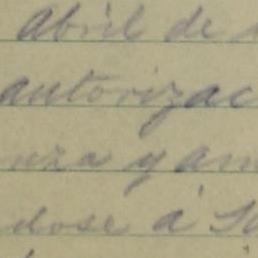 Abril de
autorizac
nza y am
dose á Su